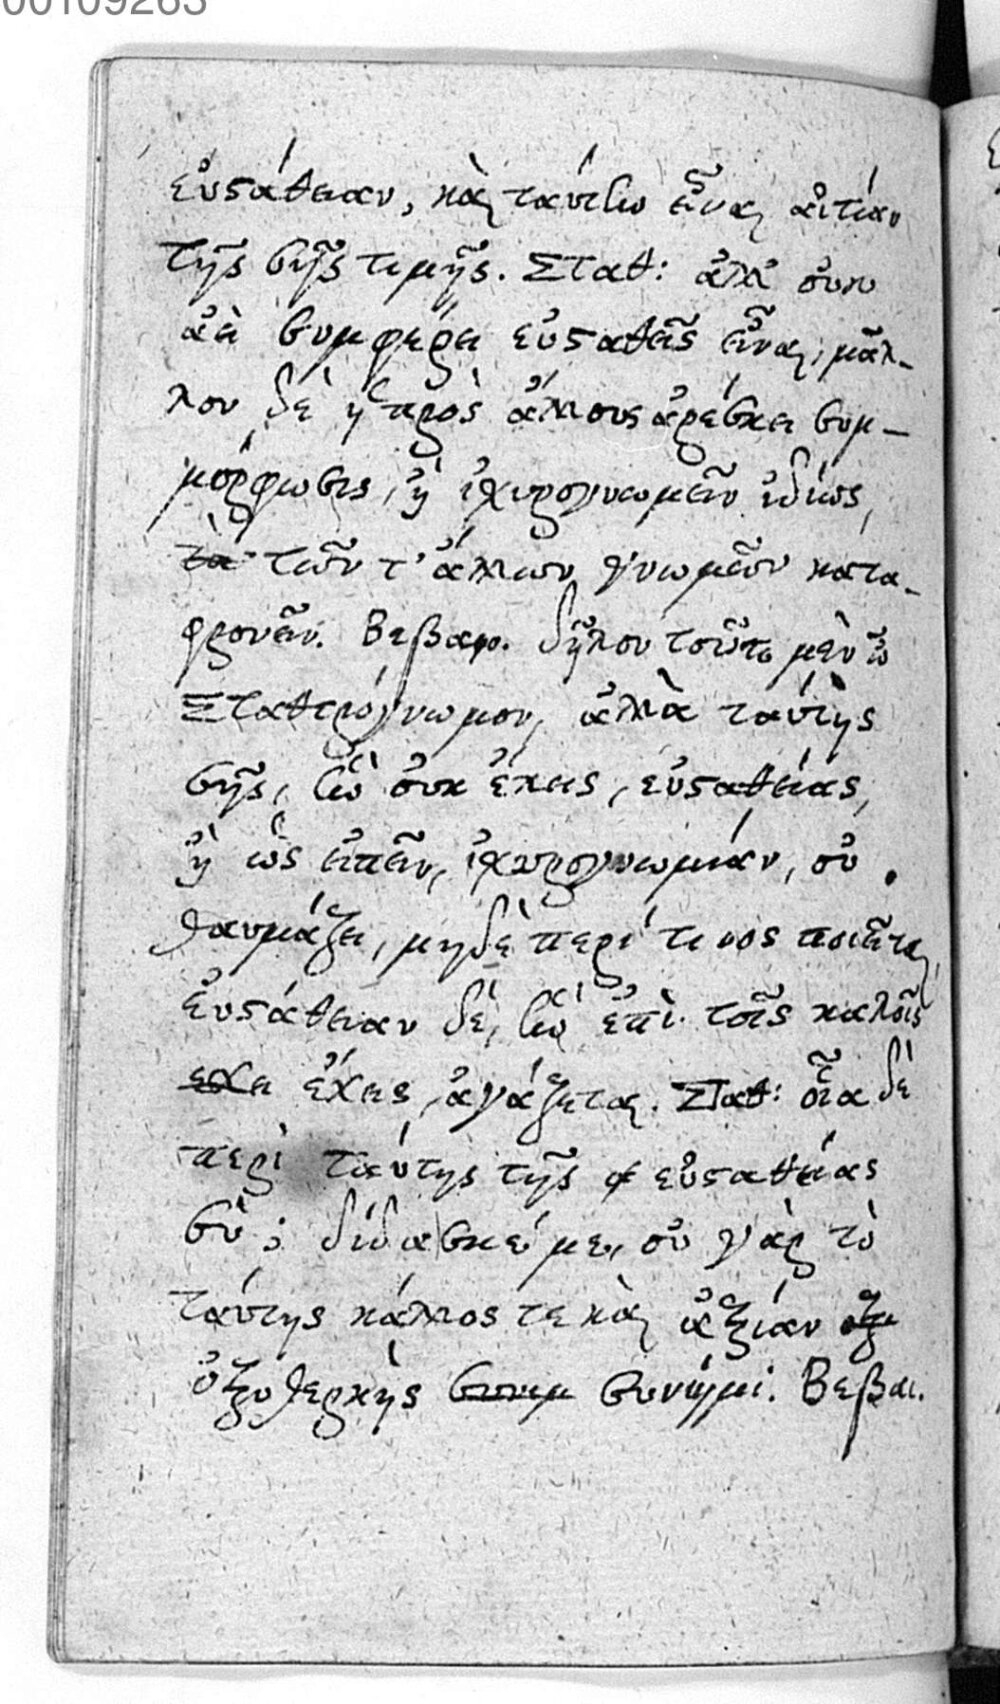 00109263
εὐστάθειαν, καὶ ταύτην εἶναι αἰτίαν
τῆς σῆς τιμῆς. Σταθ: ἀλλ' οὐκ
ἀεὶ συμφέρει εὐσταθεῖς εἶναι, μᾶλ-
λον δὲ ἡ πρὸς ἄλλους ἀρέσκει συμ-
μόρφωσις, ἢ ἰσχυρογνωμεῖν ἰδίως,
τὰ τῶν τ' ἄλλων γνωμεῶν κατα-
φρονεῖν. Βεβαιο. δῆλον τοῦτο μὲν ὦ
Σταθερόγνωμον, ἀλλὰ ταύτης
σῆς, ἣν οὐκ ἔχεις, εὐσταθείας,
ἢ ὡς εἰπεῖν, ἰσχυρογνωμίαν, οὐ
θαυμάζει, μηδὲ περί τινος ποιεῖται,
Εὐστάθειαν δέ, ἣν ἐπὶ τοῖς καλοῖς
εχει ἔχεις, ἀγάζεται. Σταθ: οἷα δὲ
περὶ ταύτης τῆς εὐσταθείας
σύ; δίδασκέ με, οὐ γὰρ τὸ
ταύτης κάλλος τε καὶ ἀξίαν οξυ
ὀξυδερκὴς συνιημ συνίημί. Βεβαι.